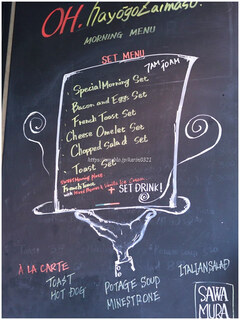 OH. hayogozaimasu.
MORNING MENU
SET MENU
7AM 10AM
· Special Morning Set
· Bacon and Eggs Set
· French Toast Set
· Cheese Omelet Set
· Chopped Salad Set
· Toast Set
French Toast
+ SET DRINK!
À LA CARTE
TOAST
HOT DOG
POTAGE SOUP
MINESTRONE
ITALIAN SALAD
SAWA
MURA